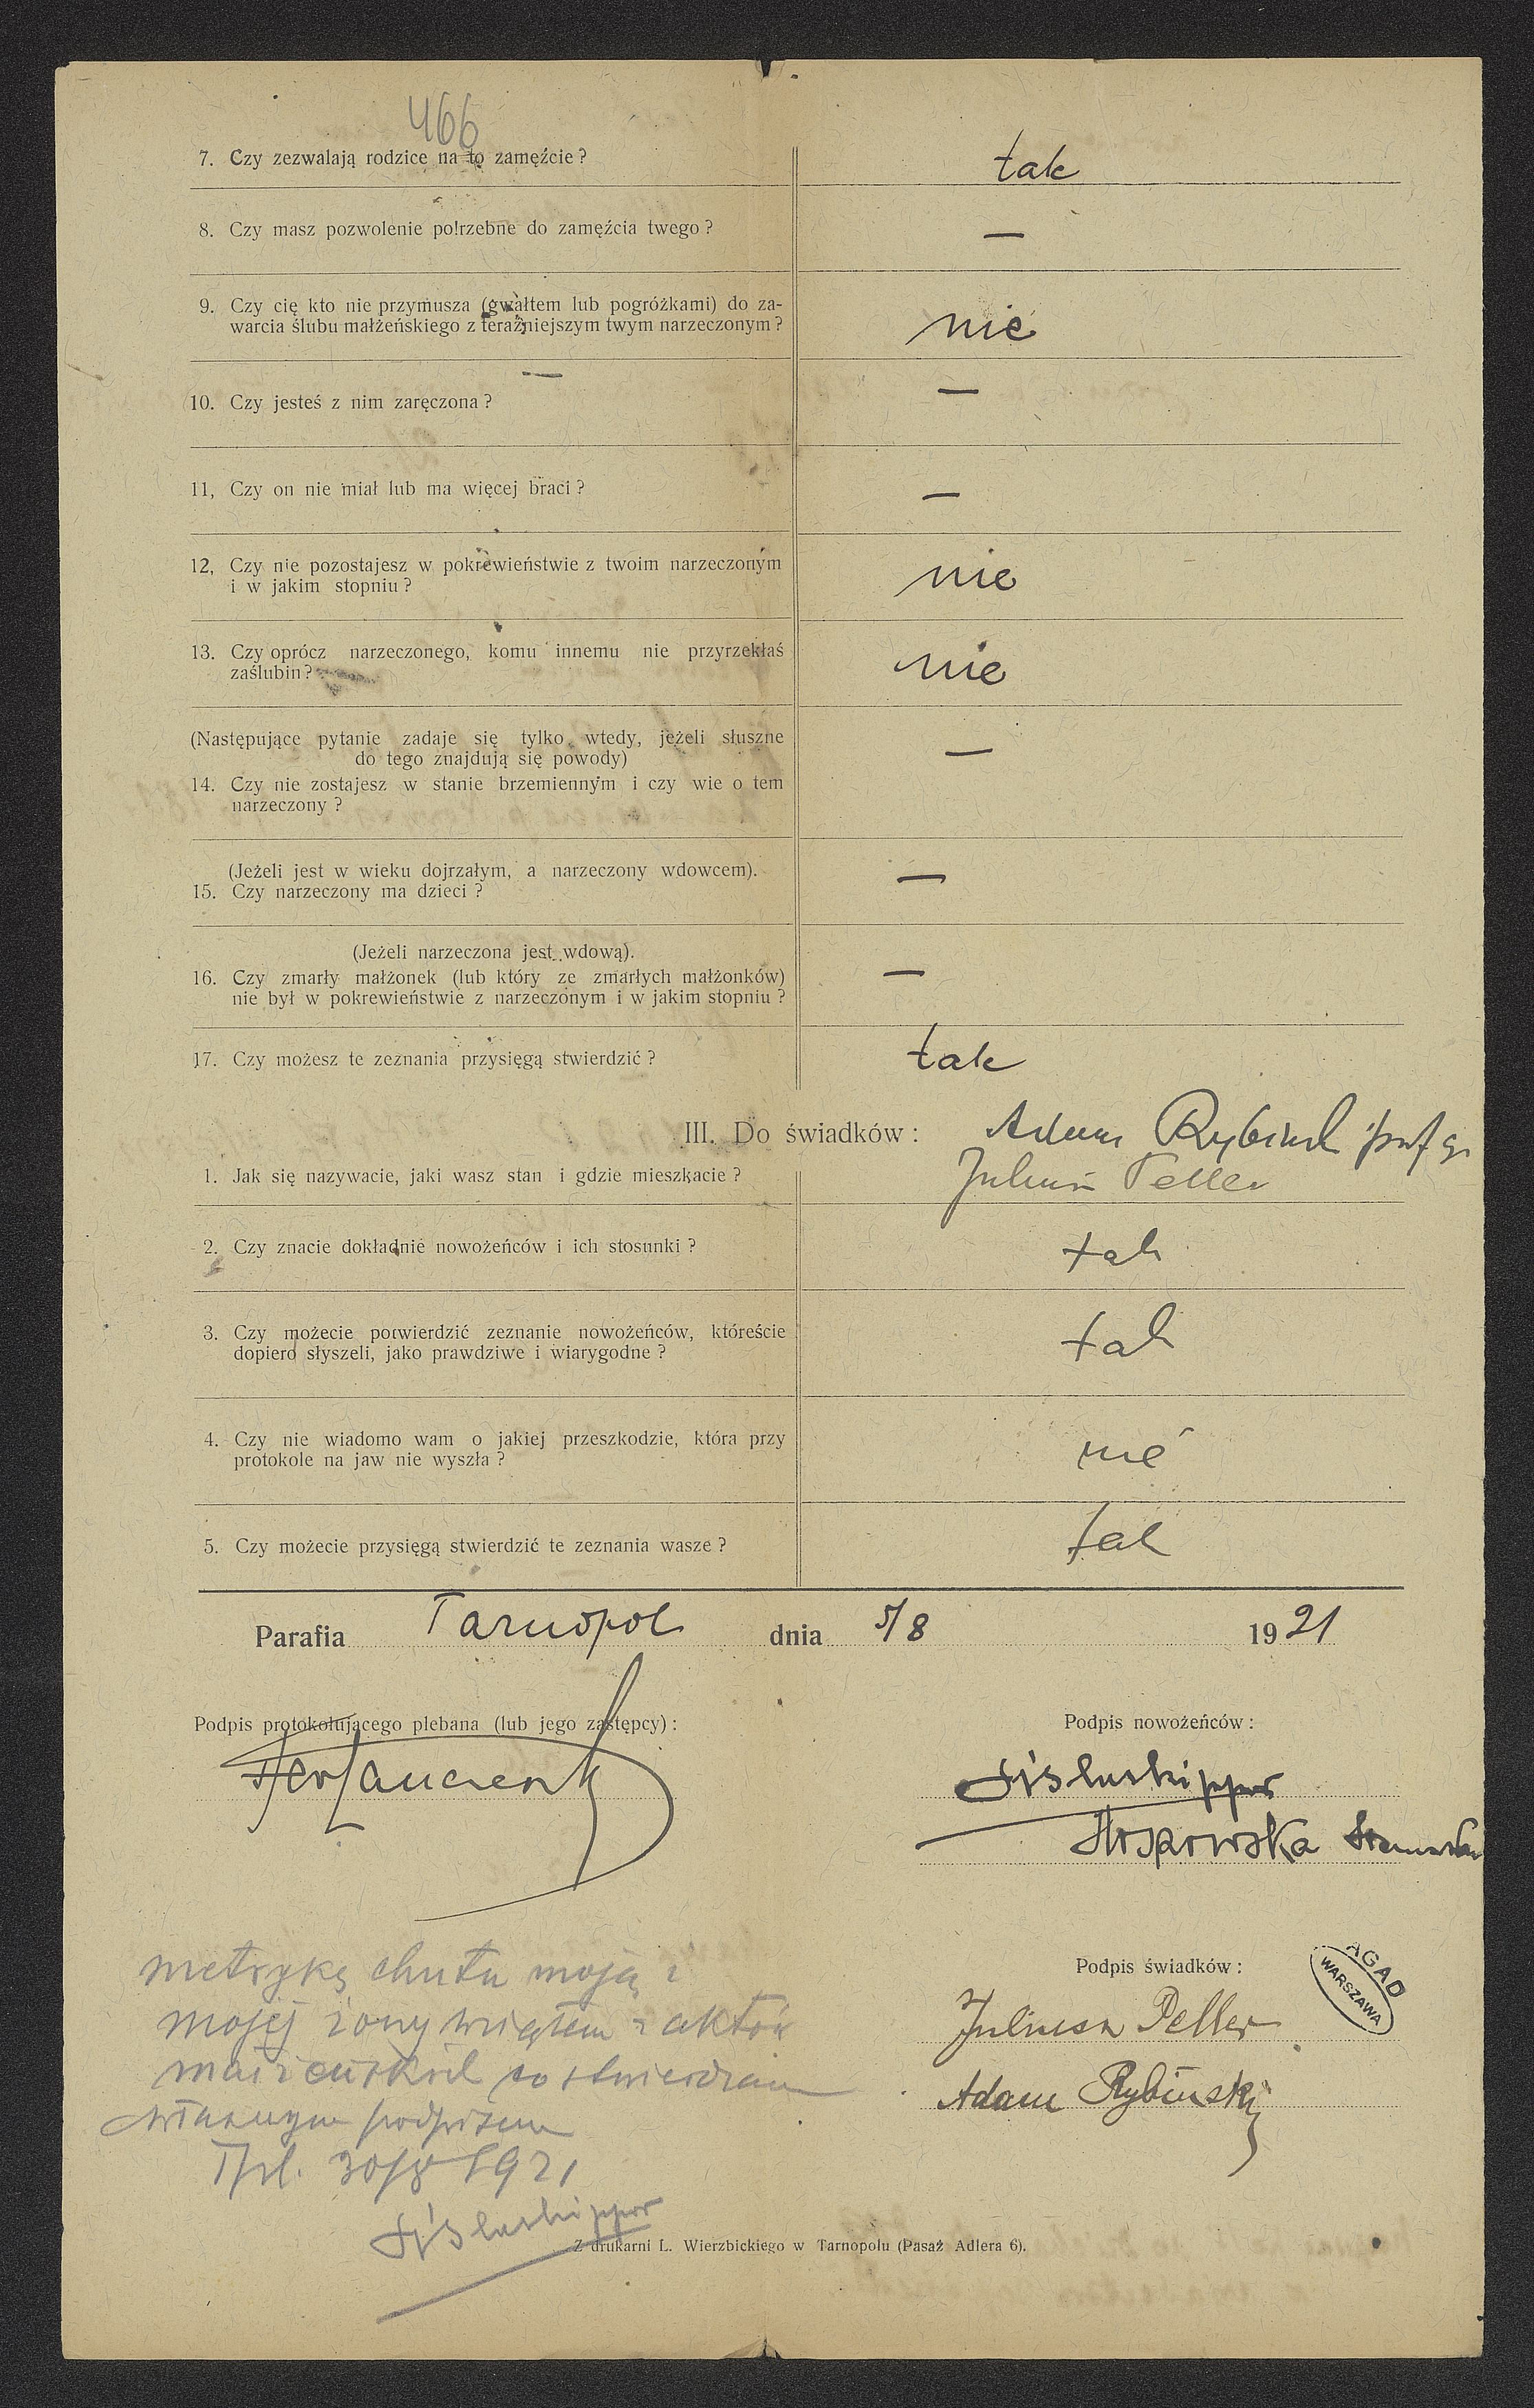 466
7. Czy zezwalają rodzice na to zamęźcie?
tak
8. Czy masz pozwolenie potrzebne do zamęźcia twego?
—
9. Czy cię kto nie przymusza (gwałtem lub pogróżkami) do za-
warcia ślubu małżeńskiego z teraźniejszym twym narzeczonym?
nie
10. Czy jesteś z nim zaręczona?
—
11, Czy on nie miał lub ma więcej braci?
—
12, Czy nie pozostajesz w pokrewieństwie z twoim narzeczonym
i w jakim stopniu?
nie
13. Czy oprócz narzeczonego, komu innemu nie przyrzekłaś
zaślubin?
nie
(Następujące pytanie zadaje się tylko wtedy, jeżeli słuszne
do tego znajdują się powody)
—
14. Czy nie zostajesz w stanie brzemiennym i czy wie o tem
narzeczony?
(Jeżeli jest w wieku dojrzałym, a narzeczony wdowcem).
15. Czy narzeczony ma dzieci?
—
(Jeżeli narzeczona jest wdową).
16. Czy zmarły małżonek (lub który ze zmarłych małżonków)
nie był w pokrewieństwie z narzeczonym i w jakim stopniu?
—
17. Czy możesz te zeznania przysięgą stwierdzić?
tak
III. Do świadków:
Adam Rybiński prof
1. Jak się nazywacie, jaki wasz stan i gdzie mieszkacie?
Juliusz Peller
2. Czy znacie dokładnie nowożeńców i ich stosunki?
tak
3. Czy możecie potwierdzić zeznanie nowożeńców, któreście
dopiero słyszeli, jako prawdziwe i wiarygodne?
tak
4. Czy nie wiadomo wam o jakiej przeszkodzie, która przy
protokole na jaw nie wyszła?
nie
5. Czy możecie przysięgą stwierdzić te zeznania wasze?
tak
Parafia Tarnopol dnia 5/8 1921
Podpis protokołującego plebana (lub jego zastępcy):
Podpis nowożeńców:
ppor
Podpis świadków:
AGAD
WARSZAWA
Juliusz Peller
Adam Rybiński
metrykę chrztu moją i
mojej żony wziąłem z aktów
małżeńskich co stwierdzam
własnym podpisem
Tpl. 30/8 1921
ppor
Z drukarni L. Wierzbickiego w Tarnopolu (Pasaż Adlera 6).